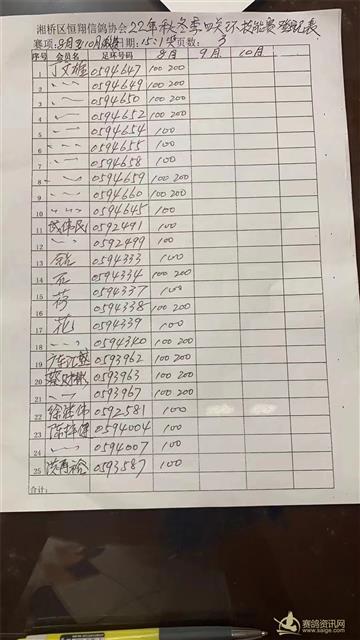 湘桥区恒翔信鸽协会22年秋冬季四关环技能赛登记表
赛项:8月至10月 日期:15:1 页数:3
序号 会员名 足环号码 8月 9月 10月
1 丁文雄 0594647 100 200
2 〃 0594649 100 200
3 〃 0594650 100 200
4 〃 0594664 100 200
5 〃 0594654 100
6 〃 0594655 100
7 〃 0594658 100
8 〃 0594659 100 200
9 〃 0594660 100 200
10 〃 0594645 100
11 0592491 100
12 〃 0592499 100
13 0594333 100
14 石 0594334 100 200
15 荷 0594337 100
16 0594338 100 200
17 花 0594339 100
18 〃 0594340 100 200
19 0593962 100 200
20 0593963 100 200
21 〃 0593967 100
22 0592581 100
23 0594004 100
24 〃 0594007 100
25 0593587 100
合计:
赛鸽资讯网
www.saige.com